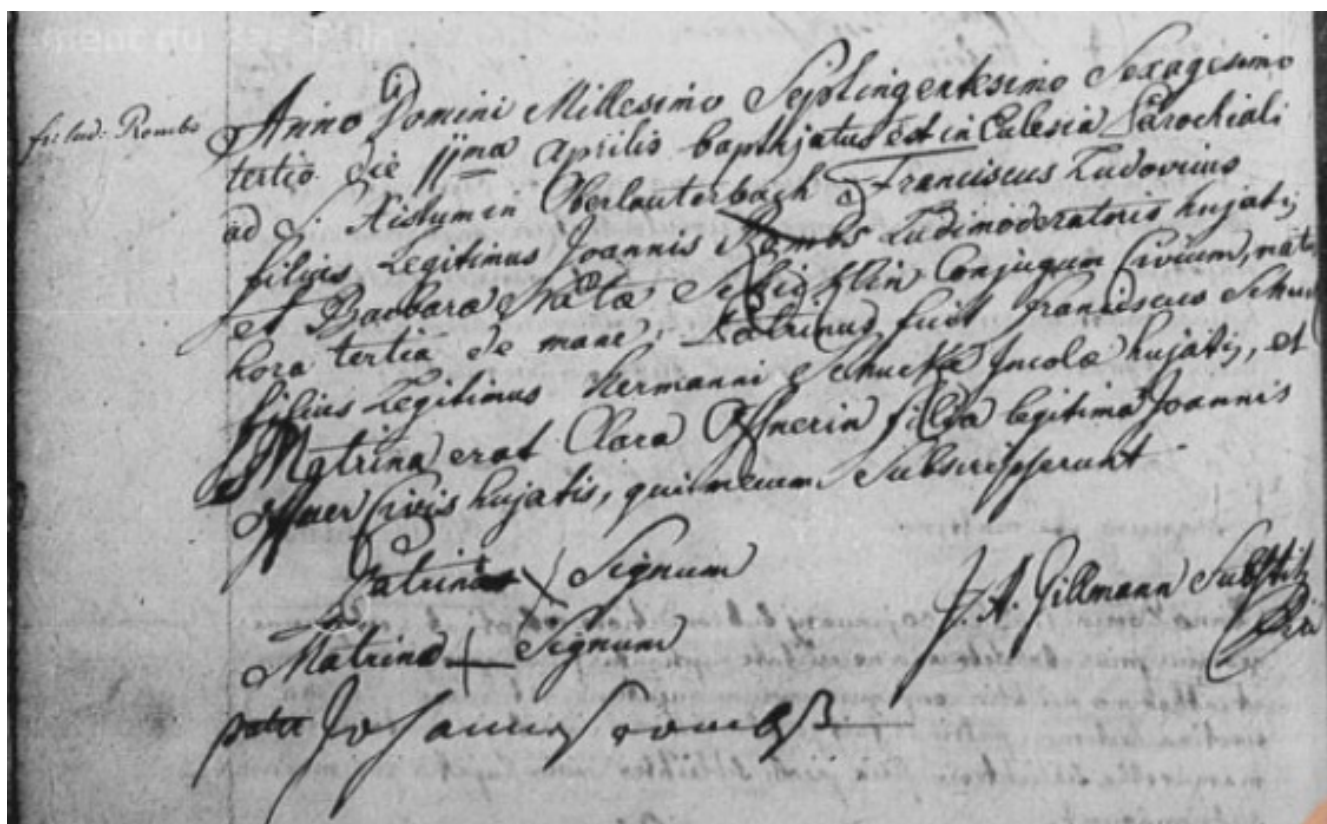 fr: lud: Rombs
Anno Domini Millesimo Septingentesimo Sexagesimo
tertio die 11ma Aprilis baptizatus est in Eclesia Parochiali
ad S. Xistum in Oberlauterbach Franciscus Ludovicus
filius Legitimus Joannis Rombs Ludimoderatoris hujatis
et Barbara Nata Conjugum Civium, natus
hora tertia de mane, Patrinus fuit Franciscus
filius Legitimus Hermanni Schucke Incola hujatis, et
Matrina erat Clara Offnerin filia legitima Joannis
Offner Civis hujatis, qui mecum Subscripserunt
Patrinus X Signum
J. A. Gillmann
Matrina + Signum
pater Johannes Rombs